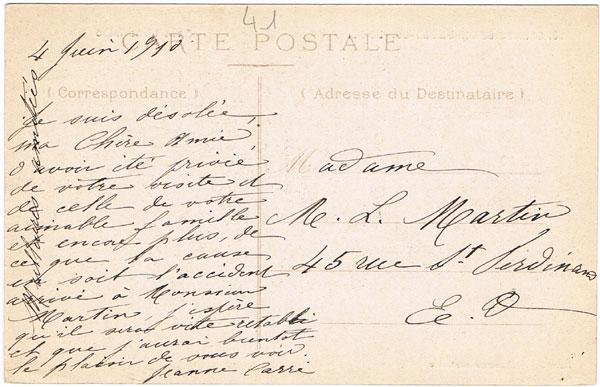 41
CARTE POSTALE
4 Juin 1910
(Correspondance)
(Adresse du Destinataire)
Je suis désolée,
ma Chère Amie
d'avoir été privée
de votre visite et
de celle de votre
aimable famille
et encore plus, de
ce que la cause
en soit l'accident
arrivé à Monsieur
Martin, j'espère
qu'il sera vite rétabli
et que j'aurai bientôt
le plaisir de vous voir.
Jeanne Carré
amitiés
Madame
M. L. Martin
45 rue St Ferdinand
E. V